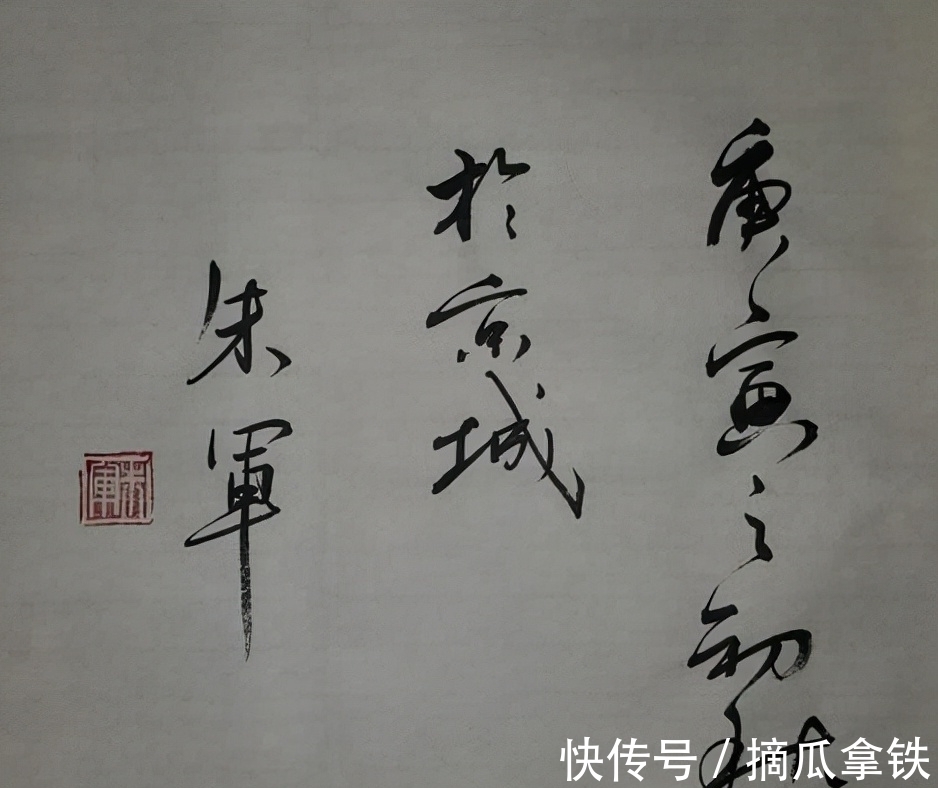 庚寅之初秋
於京城
朱軍
朱軍
快传号 / 摘瓜拿铁